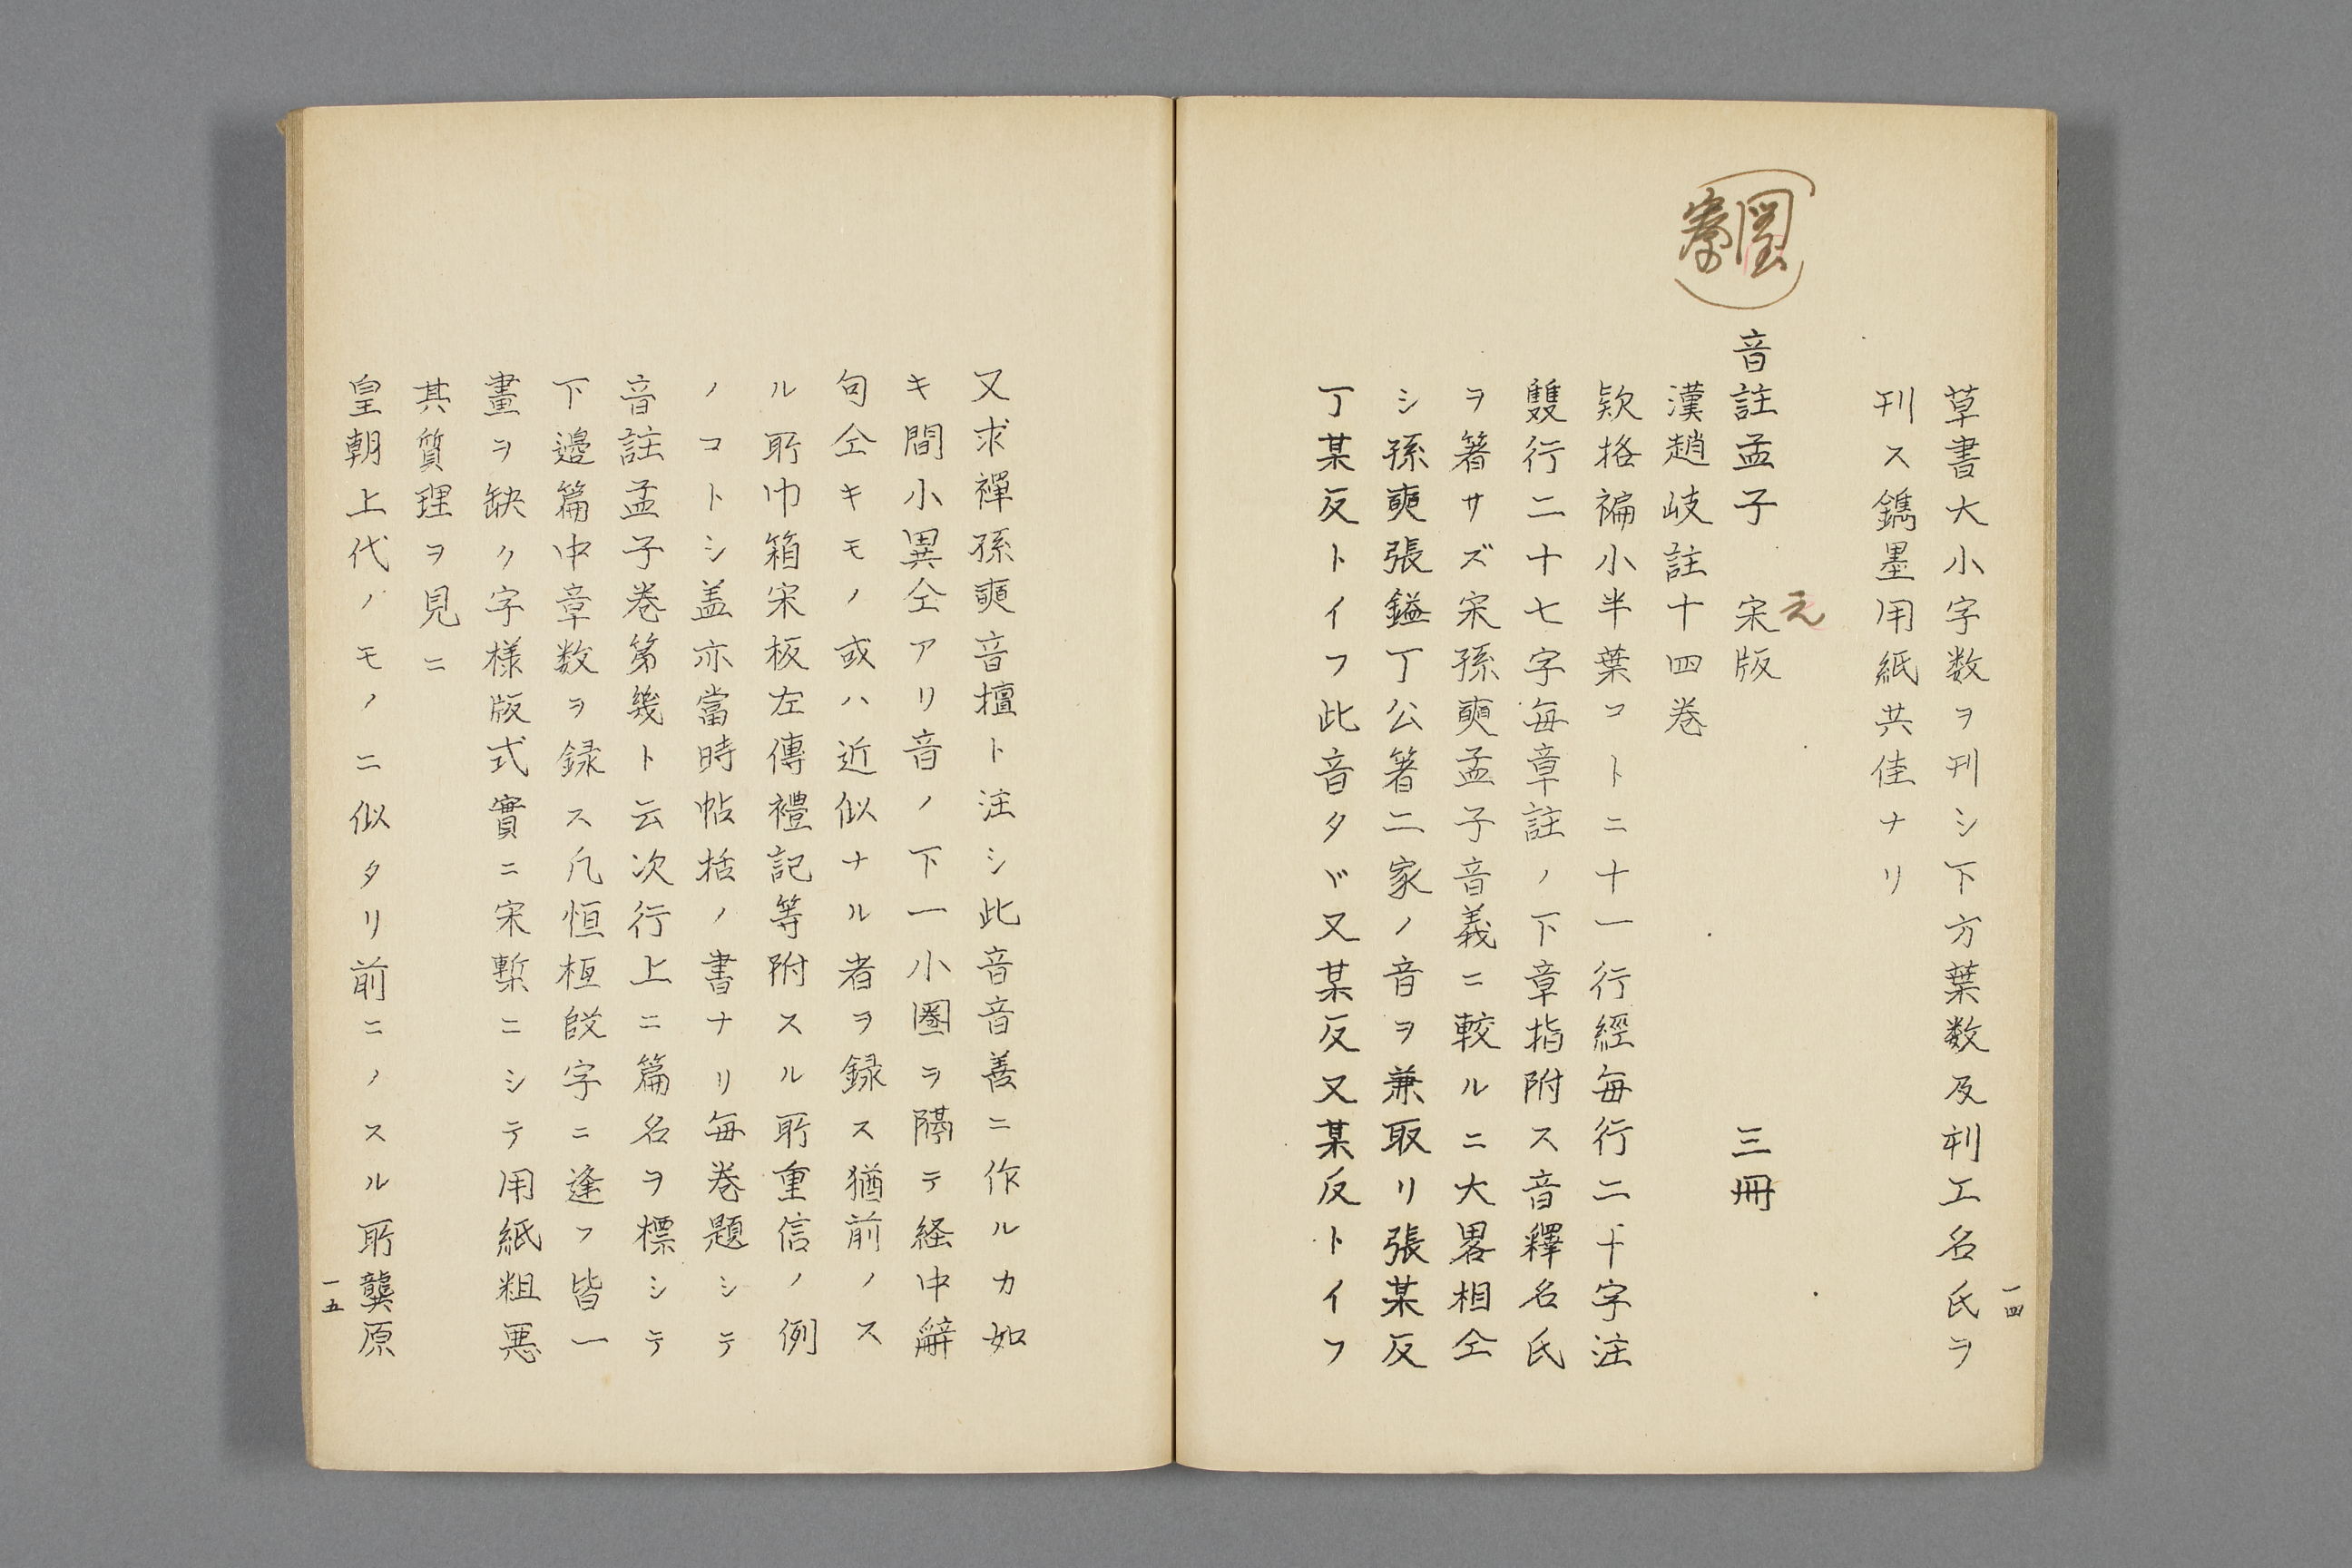 草書大小字数ヲ刊シ下方葉数及刊工名氏ヲ
刊ス鐫墨用紙共佳ナリ
音註孟子　宋版　三冊
元
漢趙岐註十四巻
欵格褊小半葉コトニ十一行經毎行二十字注
雙行二十七字毎章註ノ下章指附ス音釋名氏
ヲ著サズ宋孫奭孟子音義ニ較ルニ大畧相仝
シ孫奭張鎰丁公著二家ノ音ヲ兼取リ張某反
丁某反トイフ此音タヾ又某反又某反トイフ
一四
又求禪孫奭音擅ト注シ此音音善ニ作ルカ如
キ間小異仝アリ音ノ下一小圏ヲ隔テ経中辭
句仝キモノ或ハ近似ナル者ヲ録ス猶前ノス
ル所巾箱宋板左傳禮記等附スル所重信ノ例
ノコトシ盖亦當時帖括ノ書ナリ毎巻題シテ
音註孟子巻第幾ト云次行上ニ篇名ヲ標シテ
下邊篇中章数ヲ録ス凡恒桓字ニ逢フ皆一
畫ヲ缺ク字様版式實ニ宋槧ニシテ用紙粗悪
其質理ヲ見ニ
皇朝上代ノモノニ似タリ前ニノスル所龔原
一五